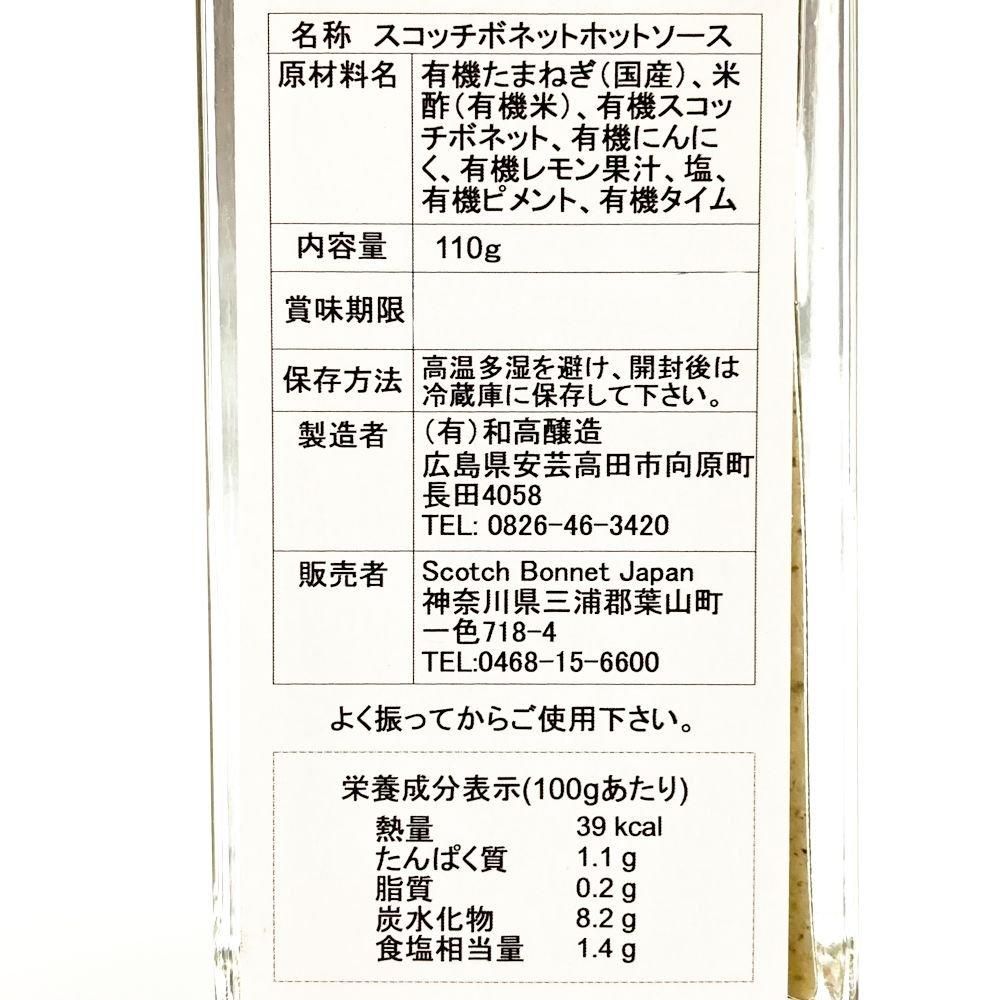 名称 スコッチボネットホットソース
原材料名 有機たまねぎ（国産）、米
酢（有機米）、有機スコッ
チボネット、有機にんに
く、有機レモン果汁、塩、
有機ピメント、有機タイム
内容量 110g
賞味期限
保存方法 高温多湿を避け、開封後は
冷蔵庫に保存して下さい。
製造者 （有）和高醸造
広島県安芸高田市向原町
長田4058
TEL: 0826-46-3420
販売者 Scotch Bonnet Japan
神奈川県三浦郡葉山町
一色718-4
TEL:0468-15-6600
よく振ってからご使用下さい。
栄養成分表示(100gあたり)
熱量 39 kcal
たんぱく質 1.1 g
脂質 0.2 g
炭水化物 8.2 g
食塩相当量 1.4 g